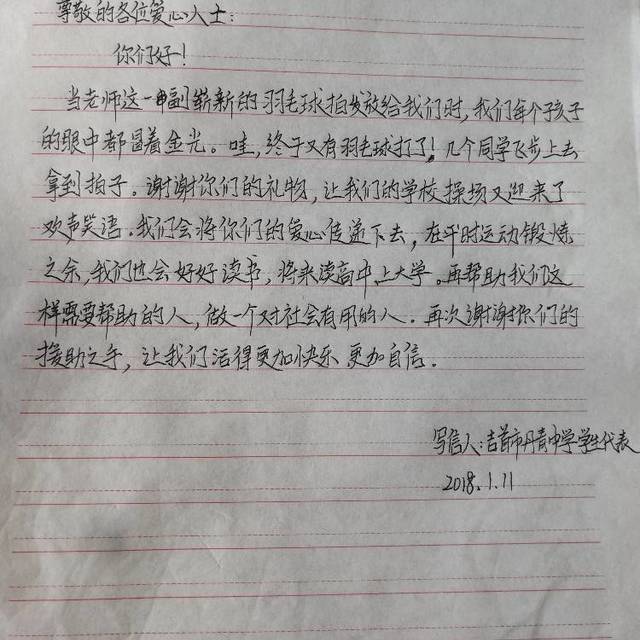 尊敬的各位爱心人士:
你们好!
当老师这一副崭新的羽毛球拍发放给我们时,我们每个孩子
的眼中都冒着金光。哇,终于又有羽毛球打了!几个同学飞步上去
拿到拍子。谢谢你们的礼物,让我们的学校操场又迎来了
欢声笑语.我们会将你们的爱心传递下去,在平时运动锻炼
之余,我们也会好好读书,将来读高中、上大学。再帮助我们这
样需要帮助的人,做一个对社会有用的人.再次谢谢你们的
援助之手,让我们活得更加快乐 更加自信.
写信人:吉首市丹青中学学生代表
2018.1.11